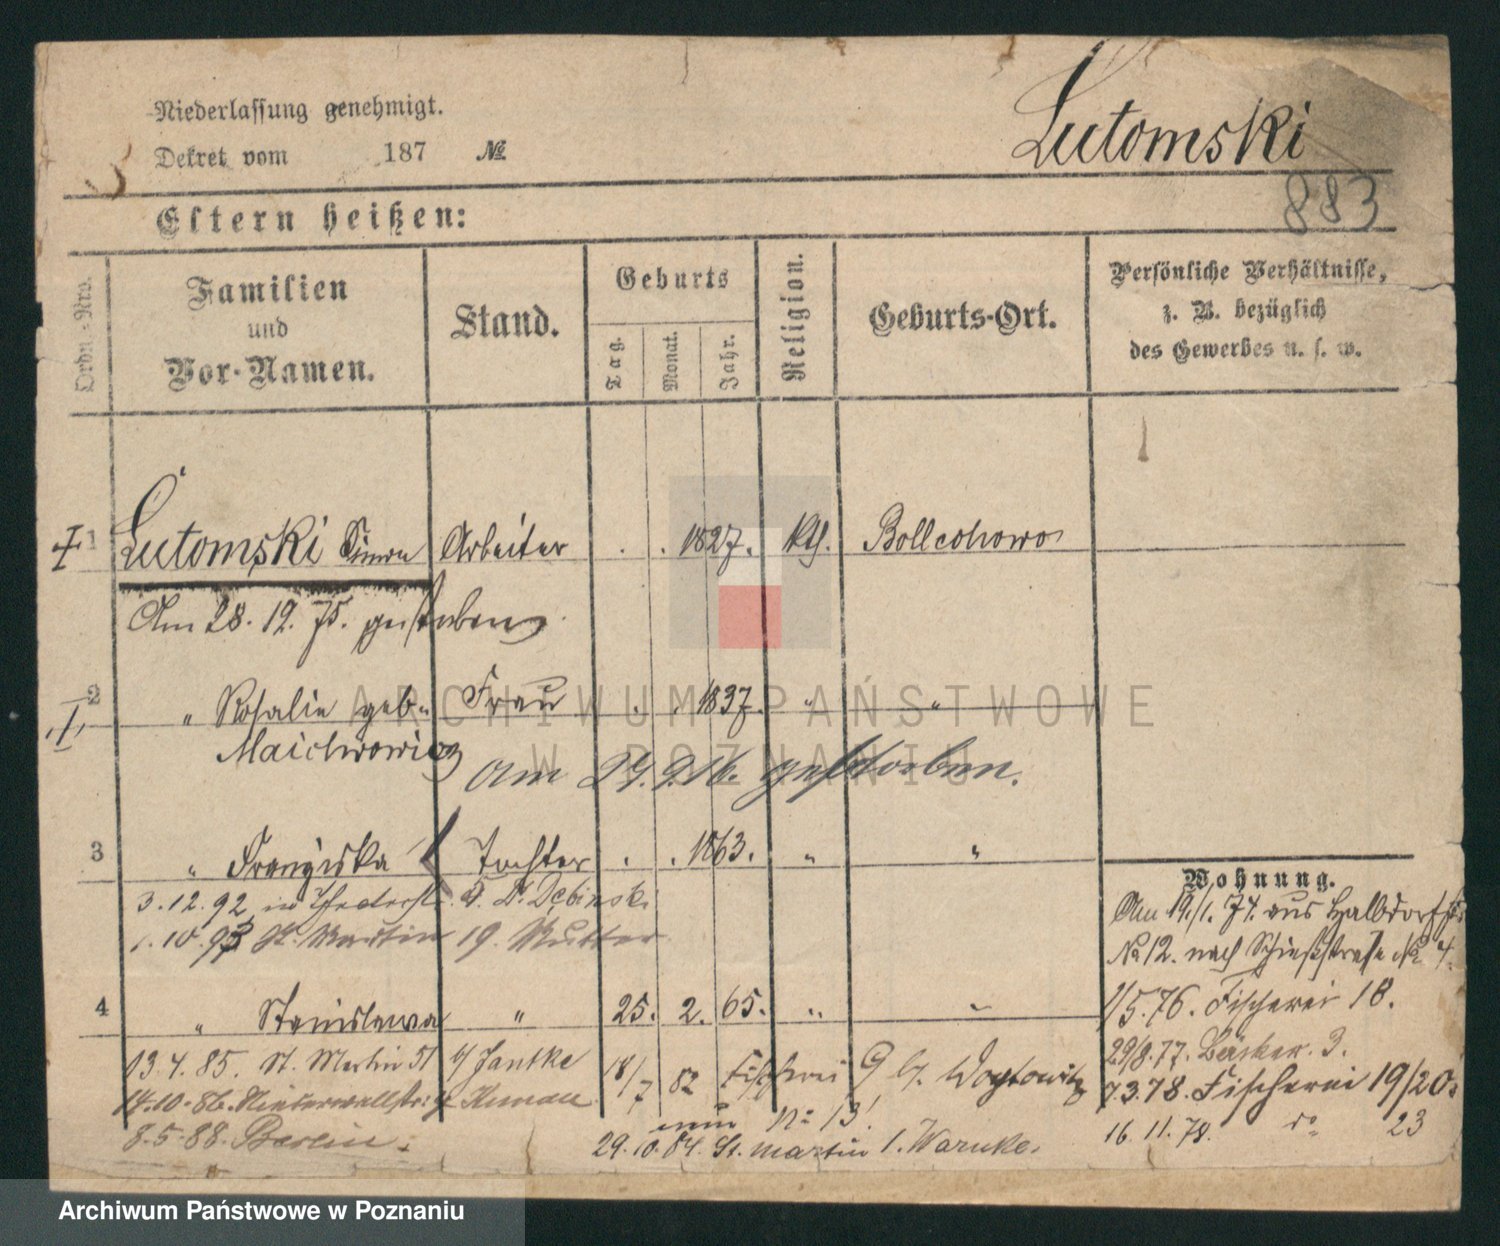 Niederlassung genehmigt.
Dekret vom 187 №
Lutomski
883
Eltern heißen:
Ordn.-Nro.
Familien
und
Vor-Namen.
Stand.
Geburts
Tag.
Monat.
Jahr.
Religion.
Geburts-Ort.
Persönliche Verhältnisse,
z. B. bezüglich
des Gewerbes u. s. w.
1 Lutomski Simon Arbeiter . . 1827. Kth. Bollechowo
Am 28. 12. 75. gestorben
2 " Rosalie geb. Frau . . 1837. " "
am 29. 9. 16. gestorben.
3 " Franziska Tochter . . 1863. " "
3.12.92 in
1.10.93 St. Martin 19. Mutter
4 " Stanislawa " 25. 2. 65. " "
13.4.85. St. Martin 51 b/ Jantke
14.10.86. Niederwallstr.
8.5.88. Berlin.
18/7 82 Fischerei 9 b.
nun No 13.
29.10.84. St. Martin 1. Warnke.
Wohnung.
Am 19./1. 74. aus Halbdorfstr
No 12. nach Schießstraße No 4.
1/5.76. Fischerei 18.
29/8.77. Bäcker. 3.
7.3.78. Fischerei 19/20.
16.11.78. do 23
ARCHIWUM PAŃSTWOWE
W POZNANIU
Archiwum Państwowe w Poznaniu